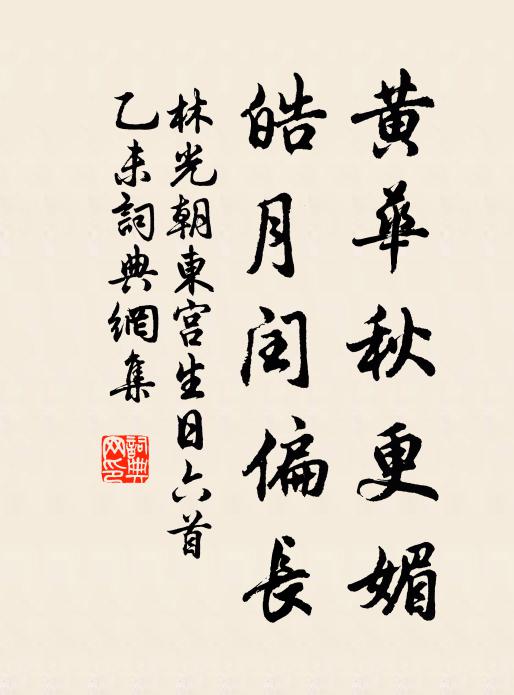 黃華秋更媚
皓月闰偏長
林光朝東宫生日六首
乙未詞典網集
詞典网印